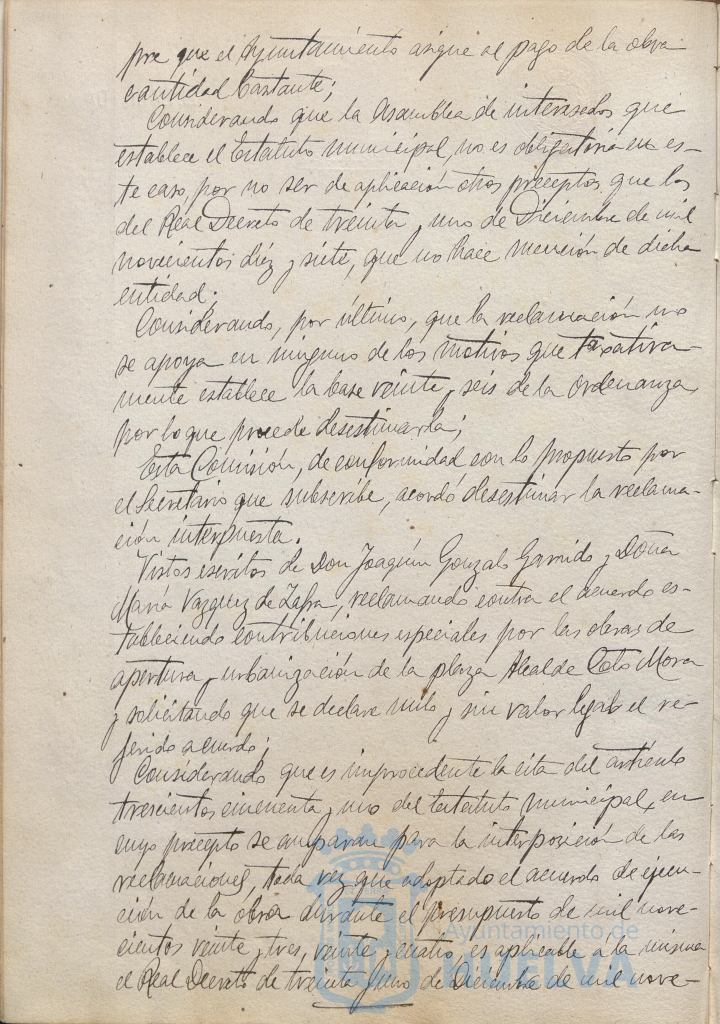 pre que el Ayuntamiento asigne al pago de la obra
cantidad bastante;
Considerando que la Asamblea de interesados que
establece el Estatuto municipal, no es obligatoria en es-
te caso por no ser de aplicación otros preceptos que los
del Real Decreto de treinta y uno de Diciembre de mil
novecientos diez y siete, que no hace mención de dicha
entidad;
Considerando, por último, que la reclamación no
se apoya en ninguno de los motivos que taxativa-
mente establece la base veinte y seis de la Ordenanza
por lo que procede desestimarla;
Esta Comisión, de conformidad con lo propuesto por
el Secretario que subscribe, acordó desestimar la reclama-
ción interpuesta.
Vistos escritos de Don Joaquín Gonzalo Garrido y Doña
María Vazquez de Zafra, reclamando contra el acuerdo es-
tableciendo contribuciones especiales por las obras de
apertura y urbanización de la plaza Alcalde Coto Mora
y solicitando que se declare nulo y sin valor legal el re-
ferido acuerdo;
Considerando que es improcedente la cita del artículo
trescientos cincuenta y uno del Estatuto municipal, en
cuyo precepto se amparan para la interposición de las
reclamaciones, toda vez que adoptado el acuerdo de ejecu-
ción de la obra durante el presupuesto de mil nove-
cientos veinte y tres, veinte y cuatro, es aplicable á la misma
el Real Decreto de treinta y uno de Diciembre de mil nove-
Ayuntamiento de
HUELVA